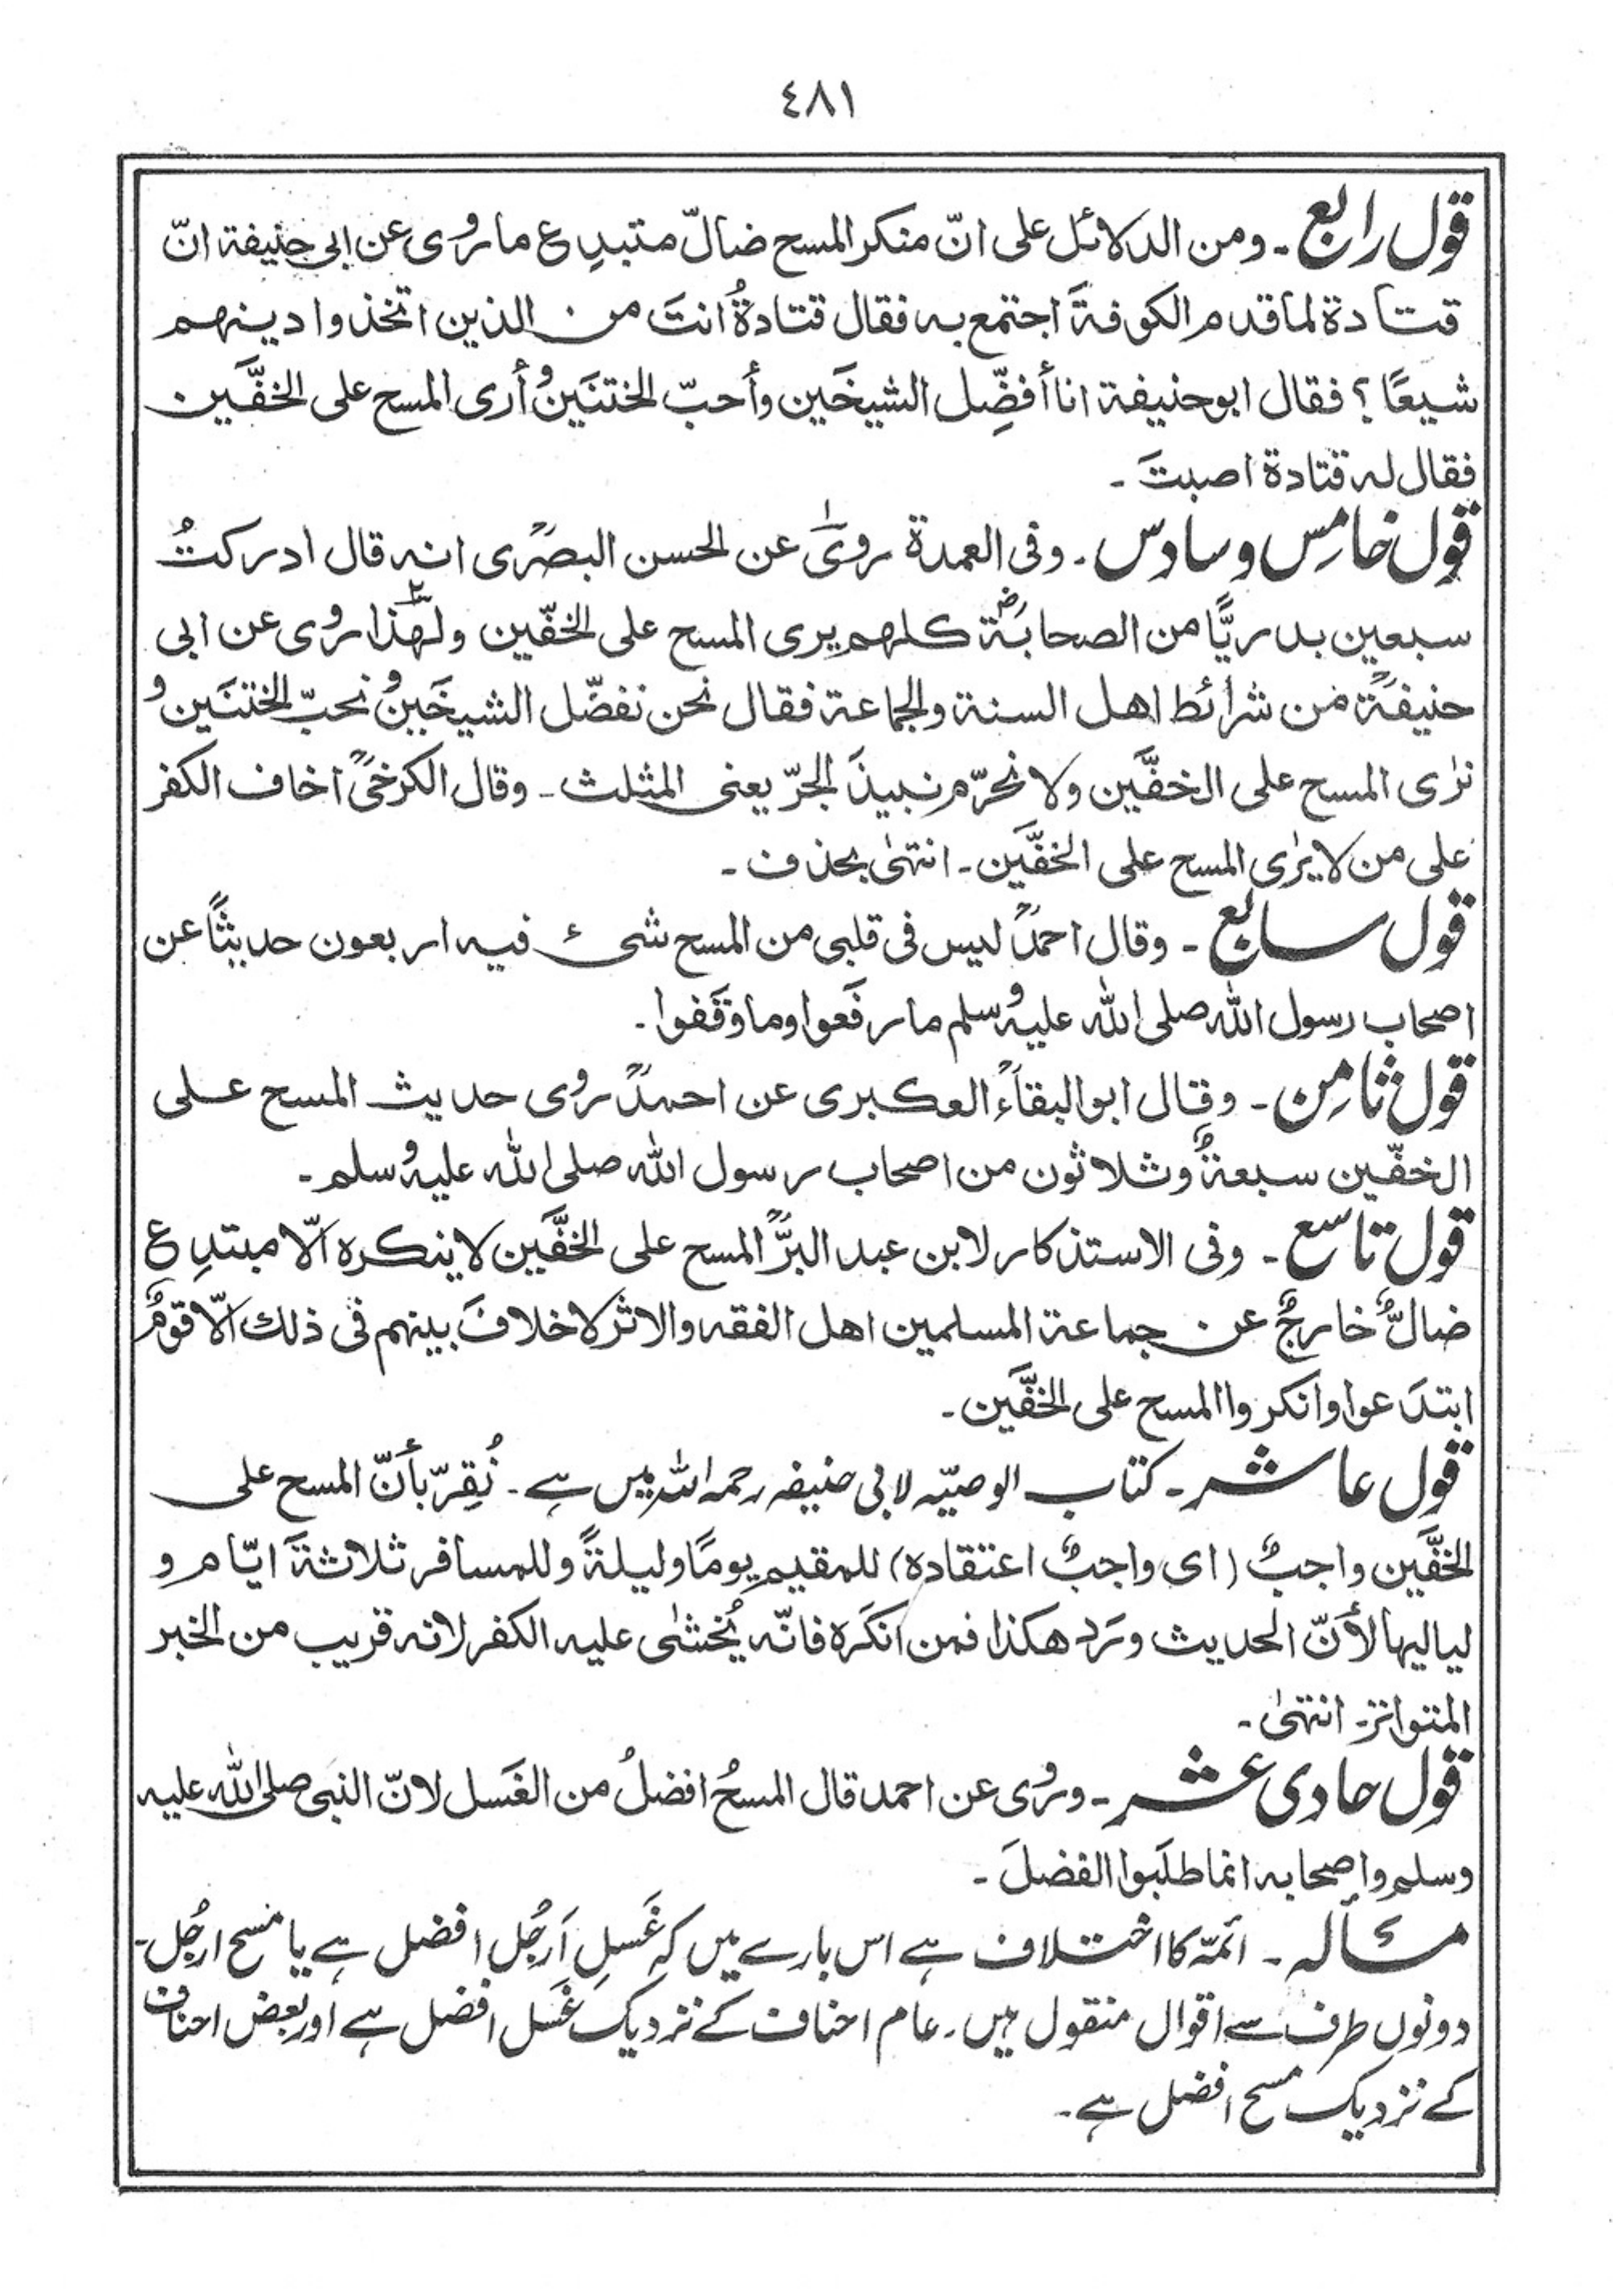 ٤٨١
قول رابع ۔ ومن الدلائل على انّ منكر المسح ضالّ متبدِع ما رُوى عن ابى حنيفة انّ
قتادة لما قدم الكوفةَ اجتمع به فقال قتادةُ انتَ من الذين اتخذوا دينهم
شيعًا ؟ فقال ابوحنيفة انا أفضِّل الشيخَين وأحبّ الختنَين وأرى المسح على الخفَّين
فقال له قتادة اصبتَ ۔
قول خامِس و سادس ۔ وفى العمدة روىٰ عن الحسن البصرىؒ انه قال ادركتُ
سبعين بدريًّا من الصحابةؓ كلهم يرى المسح على الخفّين ولهٰذا رُوى عن ابى
حنيفةؒ من شرائط اهل السنة والجماعة فقال نحن نفضّل الشيخَين ونحبّ الختنَين و
نرٰى المسح على الخفَّين ولا نحرّم نبيذَ الجرّ يعنى المثلث ۔ وقال الكرخىؒ اخاف الكفر
على من لا يرٰى المسح على الخفَّين ۔ انتهىٰ بحذف ۔
قول سابع ۔ وقال احمدؒ ليس فى قلبى من المسح شىء فيه اربعون حديثًا عن
اصحاب رسول الله صلى الله عليه وسلم ما رفَعوا وما وقَفوا ۔
قول ثامِن ۔ وقال ابوالبقاءؒ العكبرى عن احمدؒ رُوى حديث المسح على
الخفّين سبعةٌ وثلاثون من اصحاب رسول الله صلى الله عليه وسلم ۔
قول تاسع ۔ وفى الاستذكار لابن عبد البرؒ المسح على الخفَّين لا ينكره الّا مبتدِع
ضالٌّ خارجٌ عن جماعة المسلمين اهل الفقه والاثر لا خلافَ بينهم فى ذلك الّا قومٌ
ابتدَعوا وانكروا المسح على الخفَّين ۔
قول عاشر ۔ کتاب الوصیّہ لابی حنیفہ رحمہ اللہ میں ہے ۔ نُقِرّ بأنّ المسح على
الخفَّين واجبٌ (اى واجبٌ اعتقاده) للمقيم يومًا وليلةً وللمسافر ثلاثةَ ايّام و
لياليها لأنّ الحديث ورَد هكذا فمن انكَره فانّه يُخشىٰ عليه الكفر لانه قريب من الخبر
المتواتر ۔ انتهىٰ ۔
قول حادی عشر ۔ ورُوى عن احمد قال المسحُ افضلُ من الغَسل لانّ النبى صلى الله عليه
وسلم واصحابه انما طلَبوا الفضلَ ۔
مسألہ ۔ ائمّہ کا اختلاف ہے اس بارے میں کہ غَسلِ اَرجُل افضل ہے یا مسح ارجُل ۔
دونوں طرف سے اقوال منقول ہیں ۔ عام احناف کے نزدیک غَسل افضل ہے اور بعض احناف
کے نزدیک مسح افضل ہے ۔